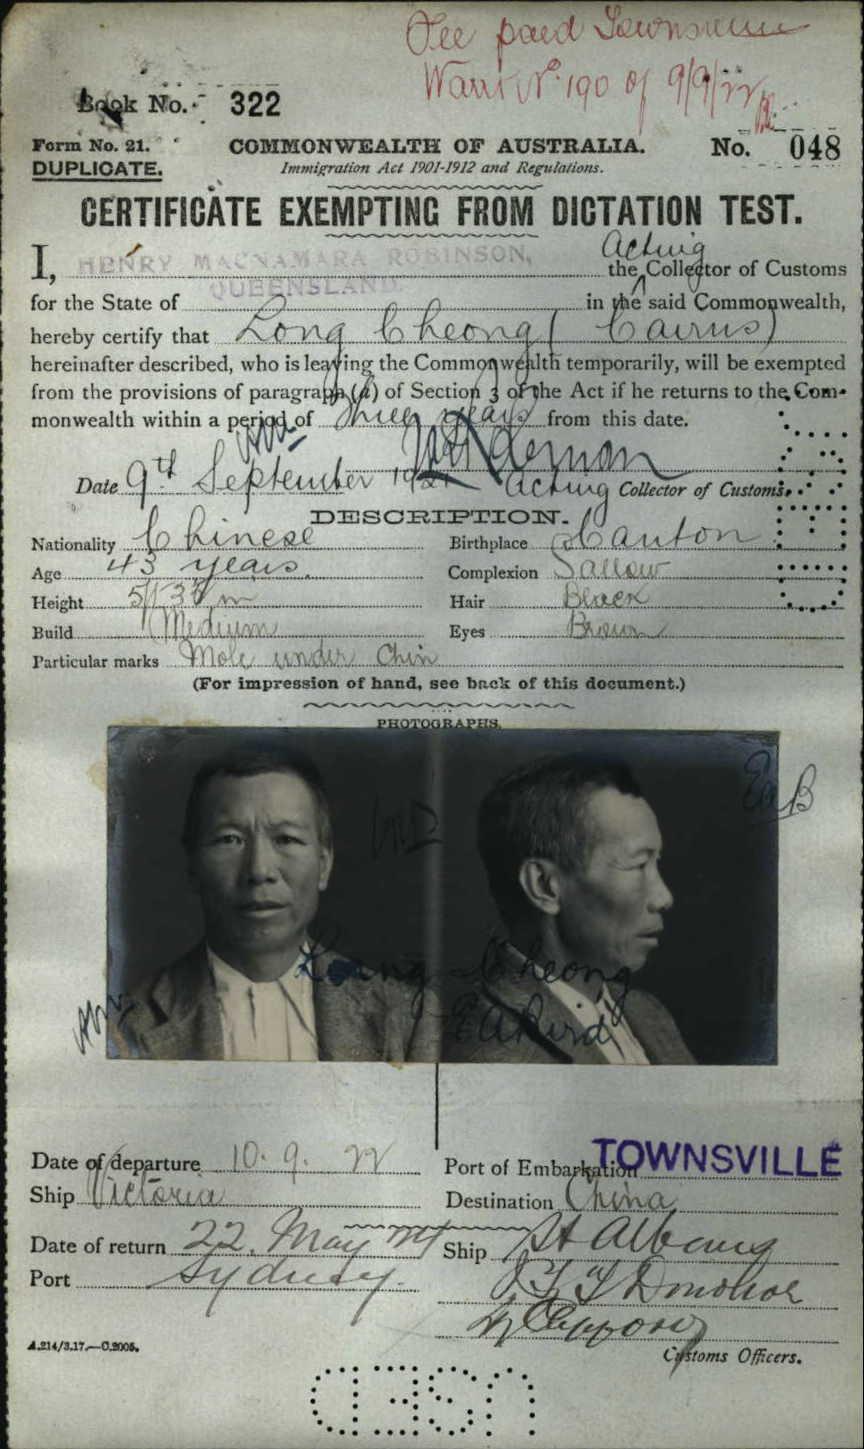 Fee paid Townsville
Warrt No. 190 of 9/9/22
Book No. 322
Form No. 21. COMMONWEALTH OF AUSTRALIA. No. 048
DUPLICATE. Immigration Act 1901-1912 and Regulations.
CERTIFICATE EXEMPTING FROM DICTATION TEST.
Acting
I, HENRY MACNAMARA ROBINSON, the Collector of Customs
QUEENSLAND.
for the State of in the said Commonwealth,
hereby certify that Long Cheong (Cairns)
hereinafter described, who is leaving the Commonwealth temporarily, will be exempted
from the provisions of paragraph (a) of Section 3 of the Act if he returns to the Com-
monwealth within a period of three years from this date.
Date 9th September 1922 Acting Collector of Customs.
DESCRIPTION.
Nationality Chinese Birthplace Canton
Age 43 years. Complexion Sallow
Height Hair Black
Build Medium Eyes Brown
Particular marks Mole under Chin
(For impression of hand, see back of this document.)
PHOTOGRAPHS.
EAB
Long Cheong
EA Bird
Date of departure 10. 9. 22 Port of Embarkation TOWNSVILLE
Ship Victoria Destination China
Date of return 22. May 24 Ship St Albans
Port Sydney. Donohoe
Customs Officers.
A.214/3.17.—C.2005.
USED